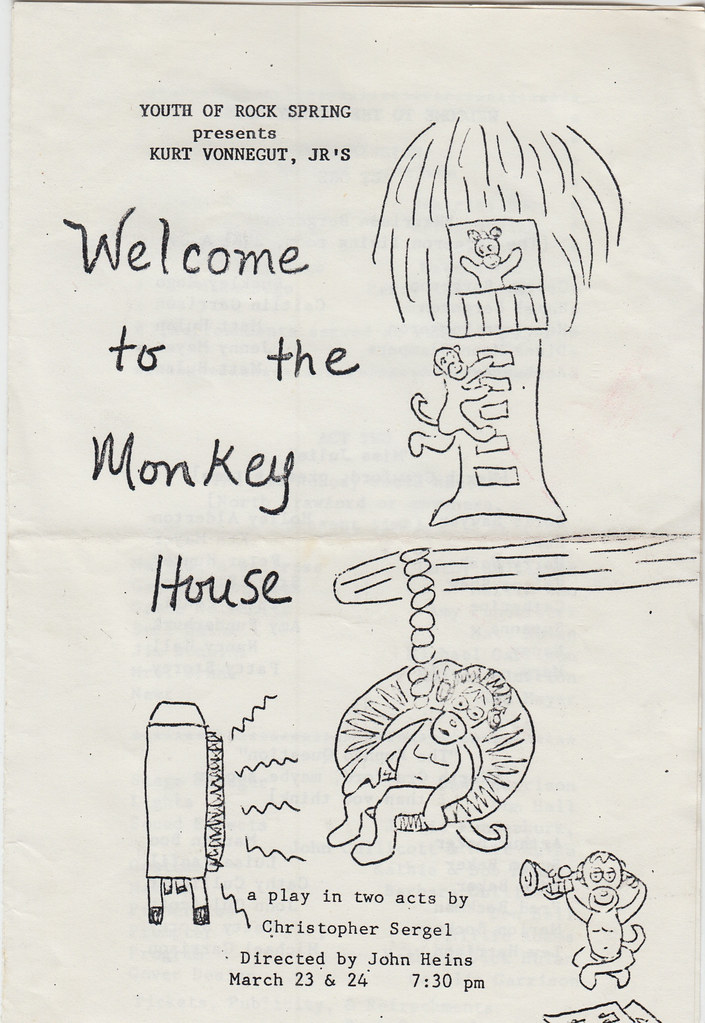 YOUTH OF ROCK SPRING
presents
KURT VONNEGUT, JR'S
Welcome
to the
Monkey
House
a play in two acts by
Christopher Sergel
Directed by John Heins
March 23 & 24 7:30 pm